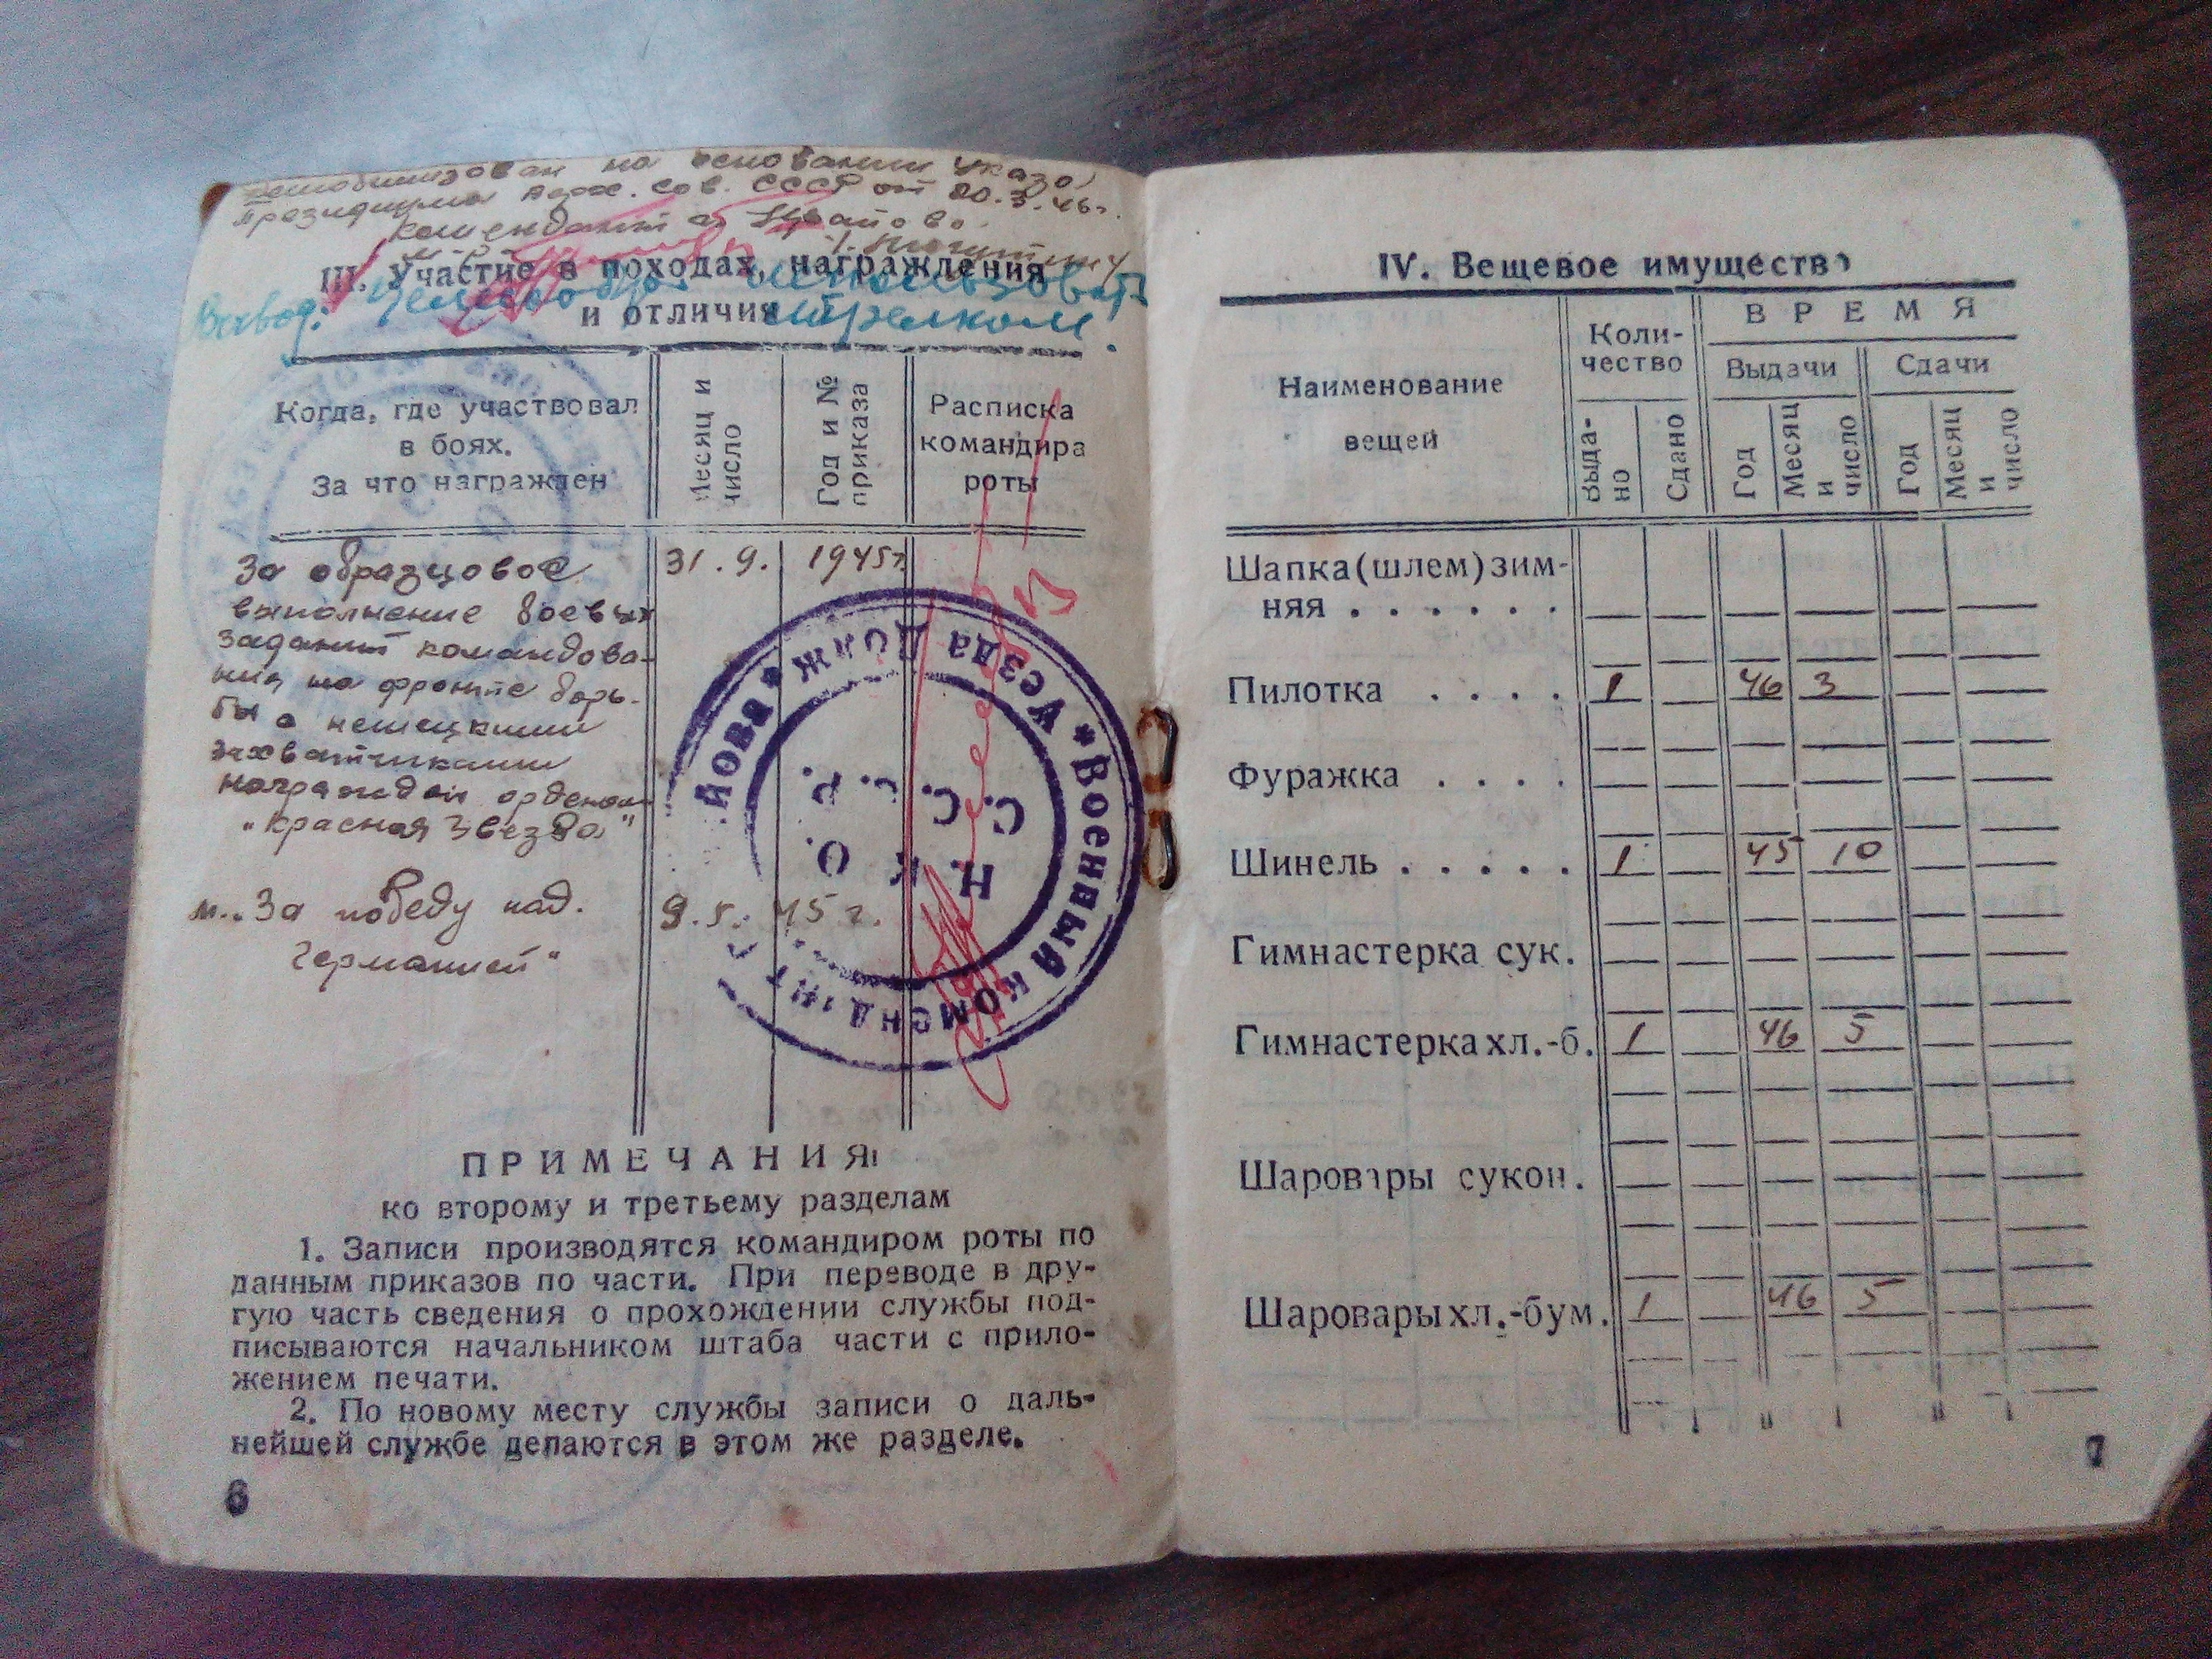 демобилизован на основании Указа
Президиума Верх. Сов. СССР от 20.3.46г.
Комендант
III. Участие в походах, награждения
и отличия
Вывод: целесообр. использовать
стрелком!
Когда, где участвовал
в боях.
За что награжден
Месяц и
число
Год и №
приказа
Расписка
командира
роты
За образцовое 31.9. 1945г.
выполнение боевых
заданий командова-
ния на фронте борь-
бы с немецкими
захватчиками
награжден орденом
„Красная Звезда"
м. „За победу над. 9.5. 45 г.
Германией"
* Военный Комендант
Уезда Должа
Н. К. О.
С. С. С. Р.
ПРИМЕЧАНИЯ:
ко второму и третьему разделам
1. Записи производятся командиром роты по
данным приказов по части. При переводе в дру-
гую часть сведения о прохождении службы под-
писываются начальником штаба части с прило-
жением печати.
2. По новому месту службы записи о даль-
нейшей службе делаются в этом же разделе.
6
IV. Вещевое имущество
Наименование
вещей
Коли-
чество
ВРЕМЯ
Выдачи
Сдачи
Выда-
но
Сдано
Год
Месяц
и
число
Год
Месяц
и
число
Шапка (шлем) зим-
няя . . . . . .
Пилотка . . . . 1 46 3
Фуражка . . . .
Шинель . . . . . 1 45 10
Гимнастерка сук.
Гимнастерка хл.-б. 1 46 5
Шаровары сукон.
Шаровары хл.-бум. 1 46 5
7